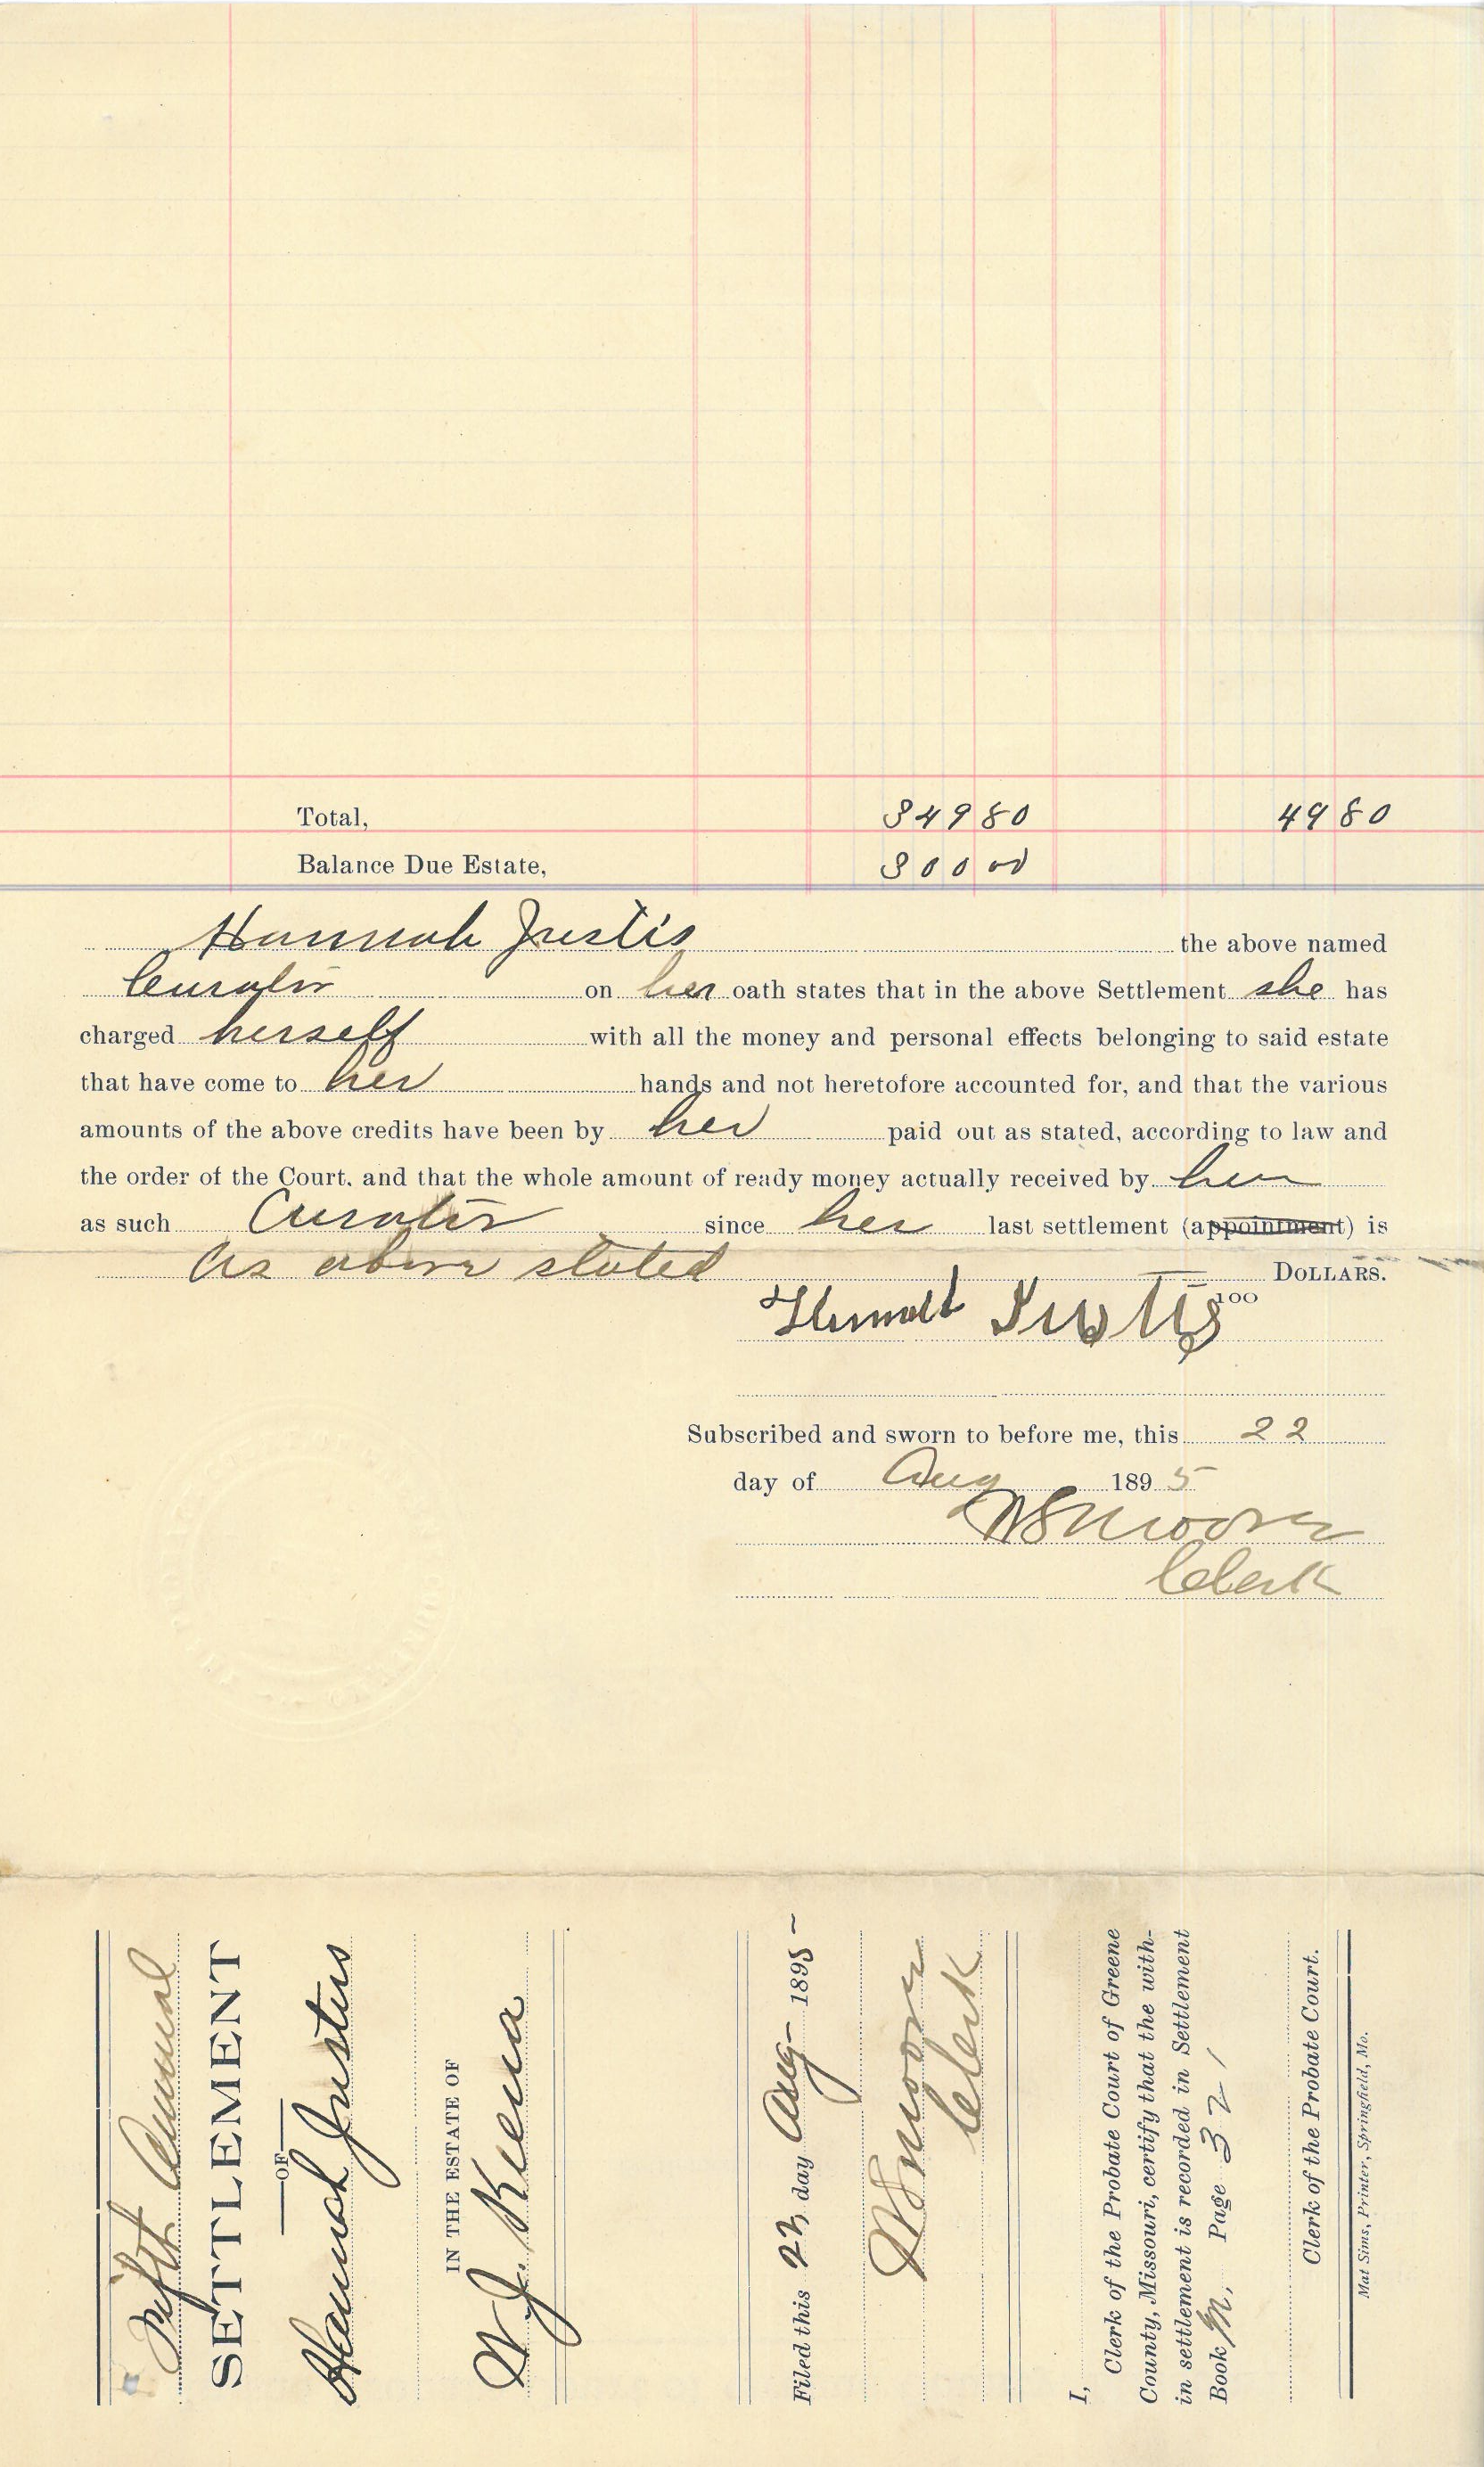 Total, 34980 4980
Balance Due Estate, 30000
Hannah Justis the above named
Curator on her oath states that in the above Settlement she has
charged herself with all the money and personal effects belonging to said estate
that have come to her hands and not heretofore accounted for, and that the various
amounts of the above credits have been by her paid out as stated, according to law and
the order of the Court, and that the whole amount of ready money actually received by her
as such Curator since her last settlement (appointment) is
as above stated DOLLARS.
100
Justis
Subscribed and sworn to before me, this 22
day of Aug 1895
WSMoore
Clerk
Fifth Annual
SETTLEMENT
OF
Hannah Justus
IN THE ESTATE OF
W. J. Keena
Filed this 22, day Aug 1895
WSmoore
Clerk
I,
Clerk of the Probate Court of Greene
County, Missouri, certify that the with-
in settlement is recorded in Settlement
Book M, Page 321
Clerk of the Probate Court.
Mat Sims, Printer, Springfield, Mo.